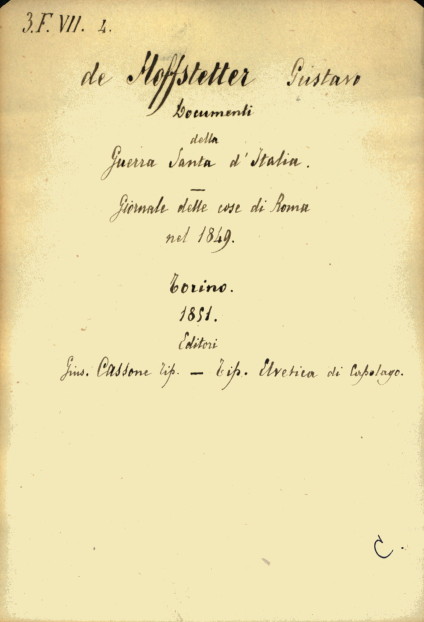 3.F. VII. 4.
de Hoffstetter Gustavo
Documenti
della
Guerra Santa d'Italia.
Giornale delle cose di Roma
nel 1849.
Torino.
1851.
Editori
Gius. Cassone Tip. — Tip. Elvetica di Capolago.
C.